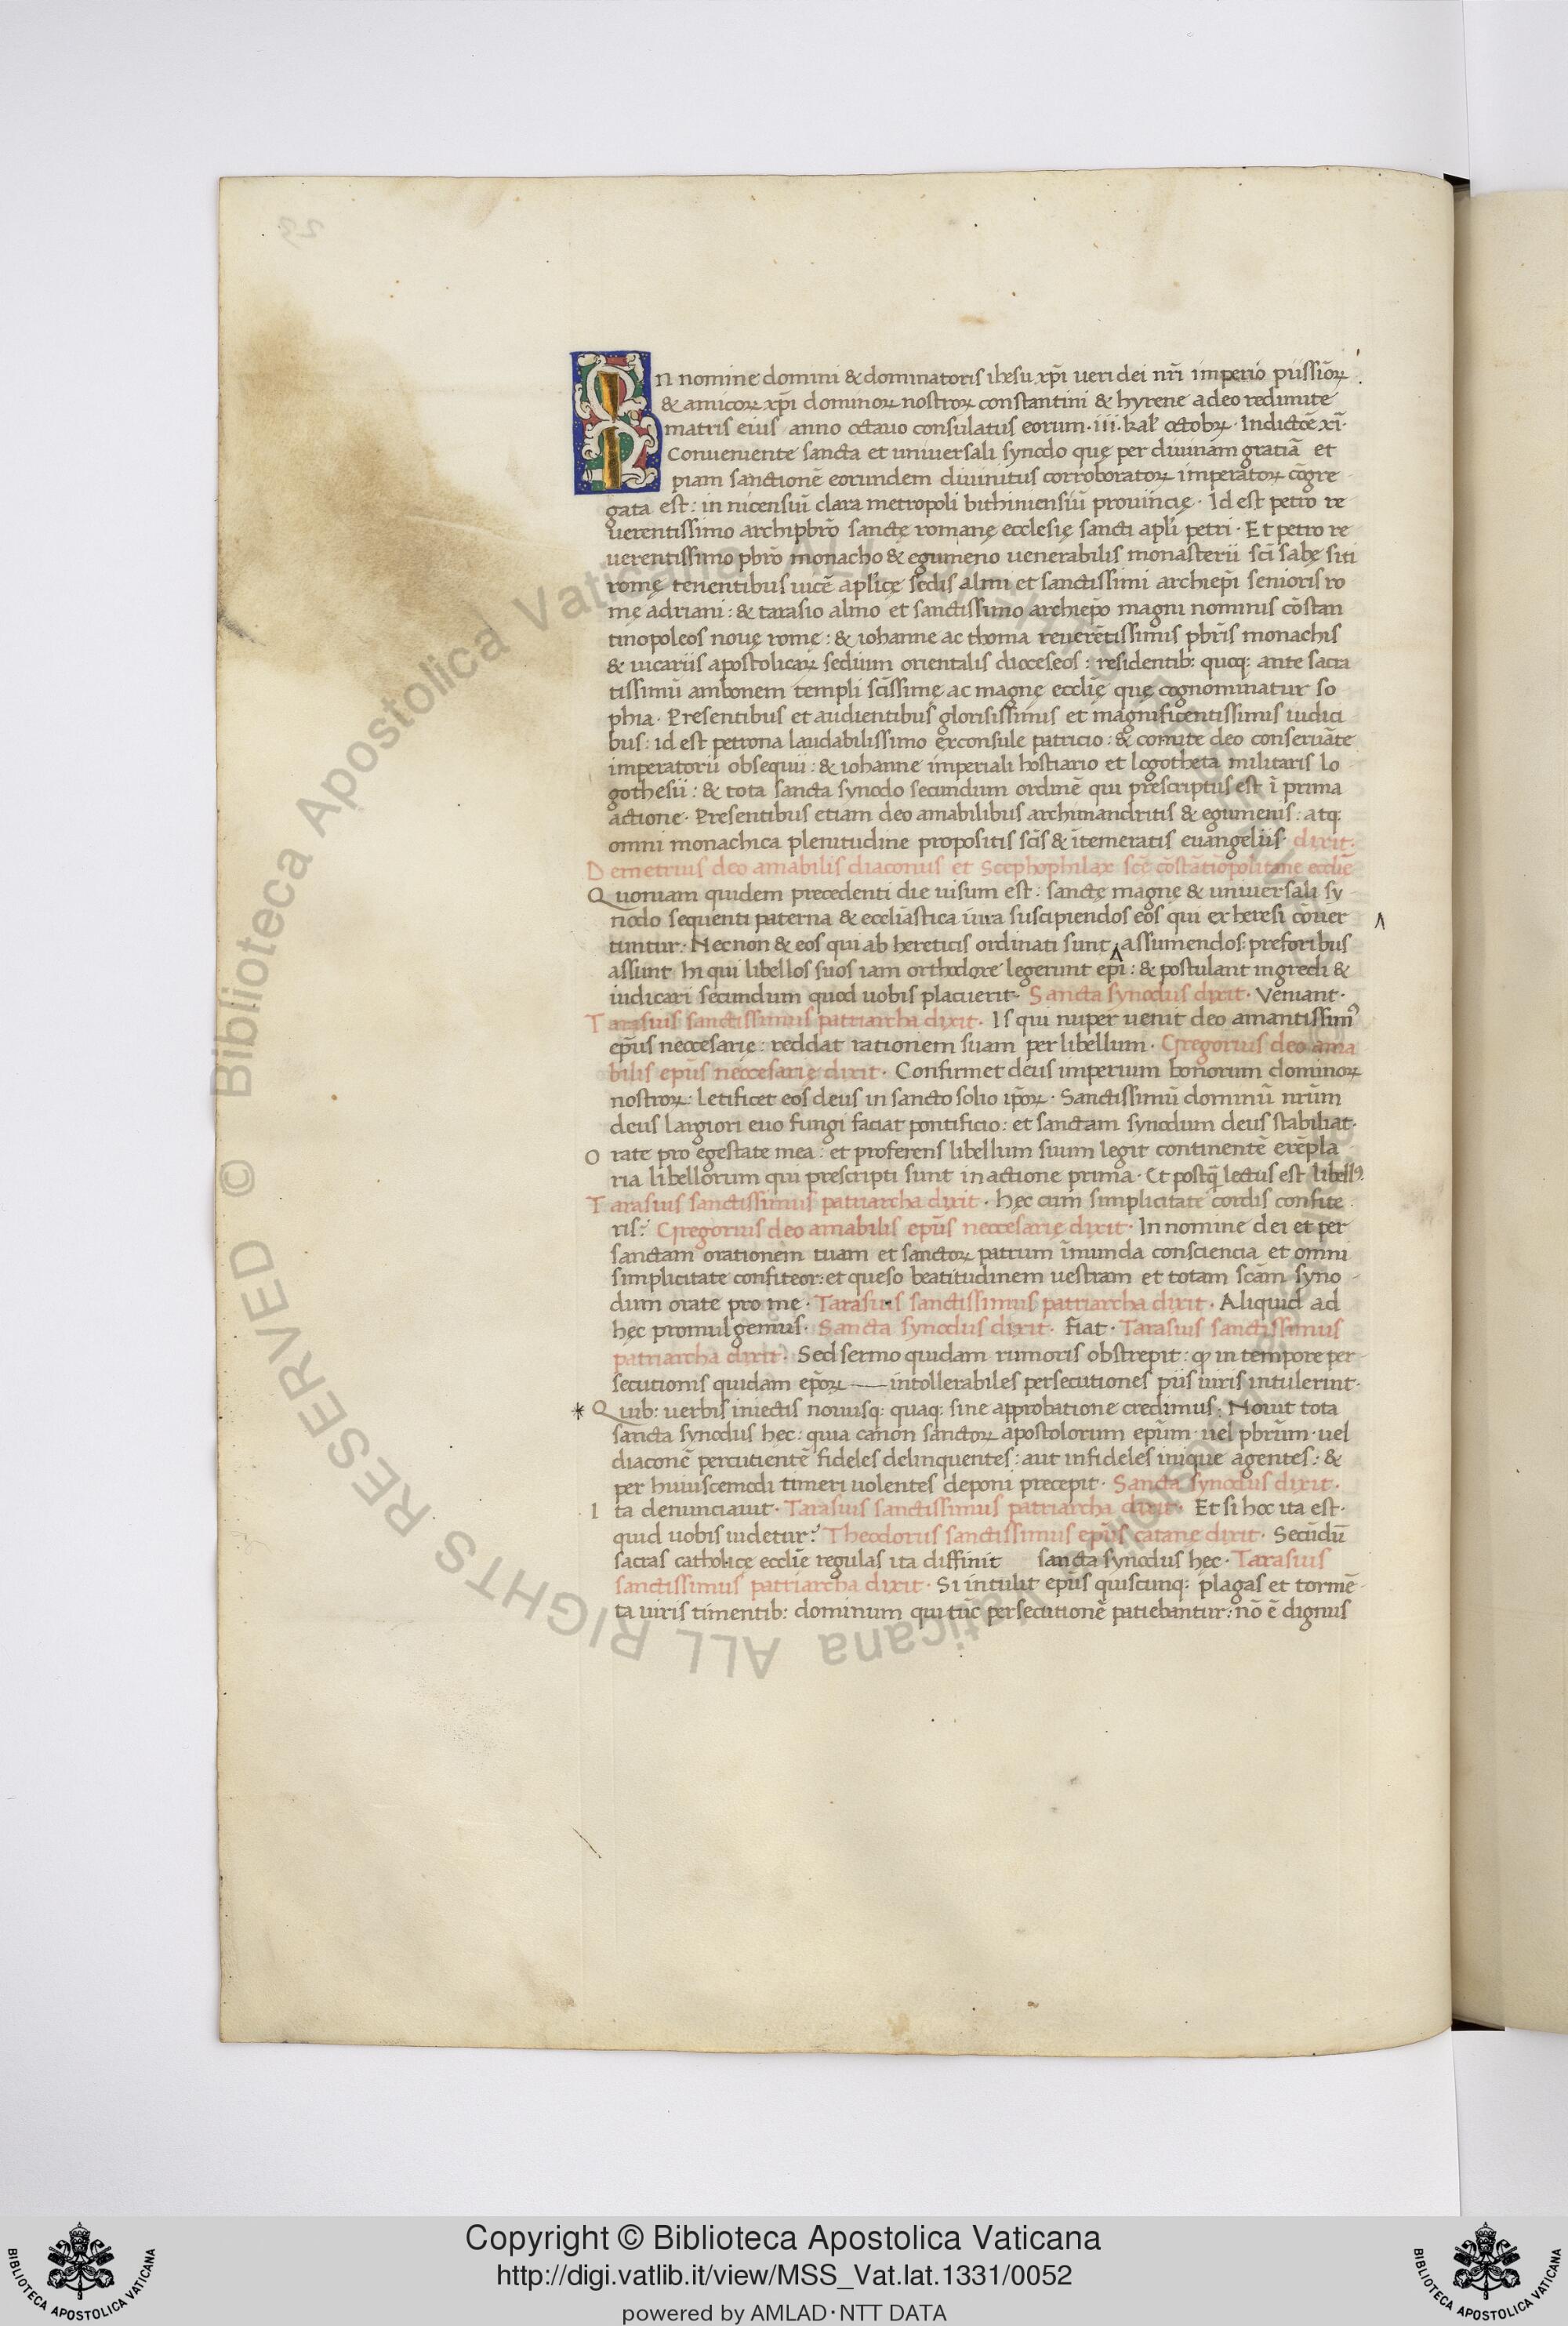 In nomine domini & dominatoris ihesu xp̄i ueri dei nr̄i imperio piissiōꝝ
& amicoꝝ xp̄i dominoꝝ nostroꝝ constantini & hyrene a deo redimite
matris eius anno octauo consulatus eorum · iii · kal' octobꝝ · Indictōe xī·
Conueniente sancta et uniuersali synodo quę per diuinam gratiā et
piam sanctionē eorundem diuinitus corroboratoꝝ imperatoꝝ cōgre
gata est : in nicensiū clara metropoli bithiniensiū prouincię · Id est petro re
uerentissimo archipbrō sanctę romanę ecclesię sancti apl'i petri · Et petro re
uerentissimo pbrō monacho & egumeno uenerabilis monasterii sc̄i sabę siti
romę tenentibus uicē aplicę sedis almi et sanctissimi archiep̄i senioris ro
mę adriani : & tarasio almo et sanctissimo archiep̄o magni nominis cōstan
tinopoleos nouę romę : & iohanne ac thoma reuerētissimis pbr̄is monachis
& uicariis apostolicaꝝ sedium orientalis dioceseos : residentib: quoq: ante sacra
tissimū ambonem templi sc̄issimę ac magnę eccl̄ię quę cognominatur so
phia · Presentibus et audientibus glorisissimis et magnificentissimis iudici
bus : id est petrona laudabilissimo exconsule patricio : & comite deo conseruāte
imperatorii obsequii : & iohanne imperiali hostiario et logotheta militaris lo
gothesii : & tota sancta synodo secundum ordinē qui prescriptus est ī prima
actione · Presentibus etiam deo amabilibus archimandritis & egumenis : atq:
omni monachica plenitudine propositis sc̄is & ītemeratis euangeliis · dixit·
Demetrius deo amabilis diaconus et Scephophilax sc̄ę cōstātiōpolitane eccl̄ię
Quoniam quidem precedenti die uisum est : sanctę magnę & uniuersali sy
nodo sequenti paterna & eccl̄iastica iura suscipiendos eos qui ex heresi cōuer
tuntur · Necnon & eos qui ab hereticis ordinati sunt ʌ assumendos : preforibus
assunt hi qui libellos suos iam orthodoxe legerunt ep̄i : & postulant ingredi &
iudicari secundum quod uobis placuerit · Sancta synodus dixit · Veniant ·
Tarasius sanctissimus patriarcha dixit · Is qui nuper uenit deo amantissimꝰ
ep̄us neocesarię : reddat rationem suam per libellum · Gregorius deo ama
bilis ep̄us neocesarię dixit · Confirmet deus imperium bonorum dominoꝝ
nostroꝝ : letificet eos deus in sancto solio ip̄oꝝ · Sanctissimū dominū nr̄um
deus largiori euo fungi faciat pontificio : et sanctam synodum deus stabiliat·
Orate pro egestate mea : et proferens libellum suum legit continentē exēpla
ria libellorum qui prescripti sunt in actione prima · Et postq̄ lectus est libellꝰ·
Tarasius sanctissimus patriarcha dixit · hęc cum simplicitate cordis confite
ris? Gregorius deo amabilis ep̄us neocesarię dixit · In nomine dei et per
sanctam orationem tuam et sanctoꝝ patrum īmunda consciencia et omni
simplicitate confiteor : et queso beatitudinem uestram et totam sc̄am syno
dum orate pro me · Tarasius sanctissimus patriarcha dixit · Aliquid ad
hęc promulgemus · Sancta synodus dixit · Fiat · Tarasius sanctissimus
patriarcha dixit · Sed sermo quidam rumoris obstrepit : ꝙ in tempore per
secutionis quidam ep̄oꝝ — intollerabiles persecutiones piis uiris intulerint·
* Quib: uerbis iniectis nouisq: quaq: sine approbatione credimus : Nouit tota
sancta synodus hęc : quia canon sanctoꝝ apostolorum ep̄um · uel pbr̄um · uel
diaconē percutientē fideles delinquentes : aut infideles inique agentes : &
per huiuscemodi timeri uolentes deponi precepit · Sancta synodus dixit ·
Ita denunciauit · Tarasius sanctissimus patriarcha dixit · Et si hoc ita est·
quid uobis uidetur? Theodorus sanctissimus ep̄us catanę dixit · Secūdū
sacras catholicę eccl̄ię regulas ita diffinit sancta synodus hęc · Tarasius
sanctissimus patriarcha dixit · Si intulit ep̄us quiscunq: plagas et tormē
ta uiris timentib: dominum qui tūc persecutionē patiebantur : nō ē dignus
© Biblioteca Apostolica Vaticana ALL RIGHTS RESERVED
Copyright © Biblioteca Apostolica Vaticana
http://digi.vatlib.it/view/MSS_Vat.lat.1331/0052
powered by AMLAD·NTT DATA
BIBLIOTECA APOSTOLICA VATICANA
BIBLIOTECA APOSTOLICA VATICANA